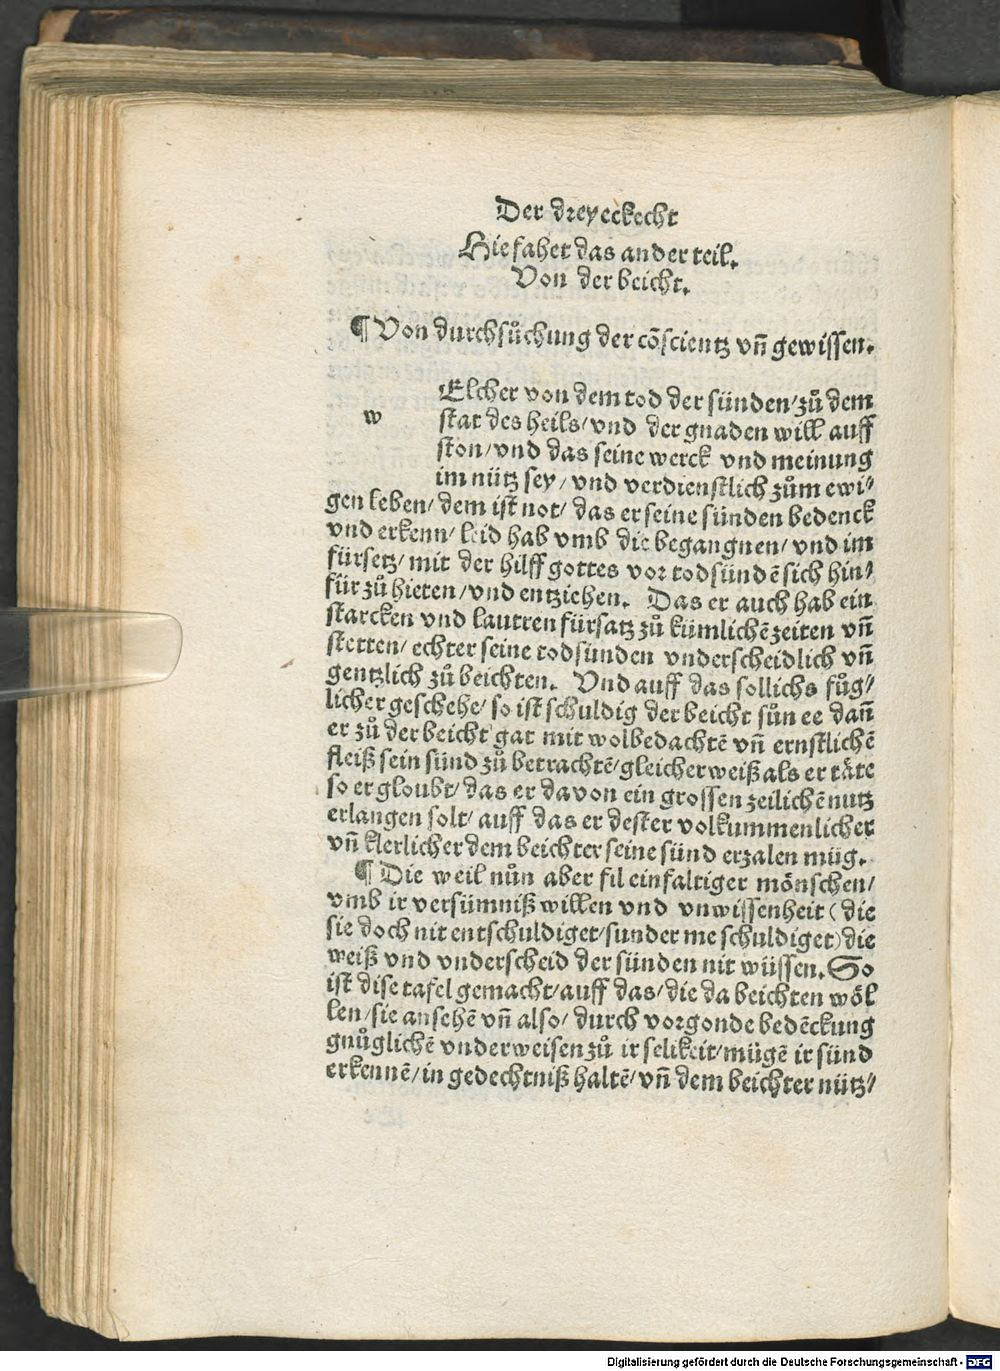 Der dreyeckecht
Hie fahet das ander teil.
Von der beicht.
¶ Von durchsůchung der cōscientz vn̄ gewissen.
w
Elcher von dem tod der sünden/zů dem
stat des heils/vnd der gnaden will auff
ston/vnd das seine werck vnd meinung
im nütz sey/vnd verdienstlich zům ewi⸗
gen leben/dem ist not/das er seine sünden bedenck
vnd erkenn/leid hab vmb die begangnen/vnd im
fürsetz/mit der hilff gottes vor todsündē sich hin⸗
für zů hieten/vnd entziehen. Das er auch hab ein
starcken vnd lautren fürsatz zů kümlichē zeiten vn̄
stetten/echter seine todsünden vnderscheidlich vn̄
gentzlich zů beichten. Vnd auff das sollichs fůg⸗
licher geschehe/so ist schuldig der beicht sůn ee dan̄
er zů der beicht gat mit wolbedachtē vn̄ ernstlichē
fleiß sein sünd zů betrachtē/gleicher weiß als er tåte
so er gloubt/das er davon ein grossen zeilichē nutz
erlangen solt/auff das er dester volkummenlicher
vn̄ klerlicher dem beichter seine sünd erzalen müg.
¶ Die weil nůn aber fil einfaltiger mönschen/
vmb ir versümniß willen vnd vnwissenheit (die
sie doch nit entschuldiget/sunder me schuldiget) die
weiß vnd vnderscheid der sünden nit wüssen. So
ist dise tafel gemacht/auff das/die da beichten wöl
len/sie ansehē vn̄ also/durch vorgonde bedēckung
gnůglichē vnderweisen zů ir selikeit/mügē ir sünd
erkennē/in gedechtniß haltē/vn̄ dem beichter nütz⸗
Digitalisierung gefördert durch die Deutsche Forschungsgemeinschaft - DFG